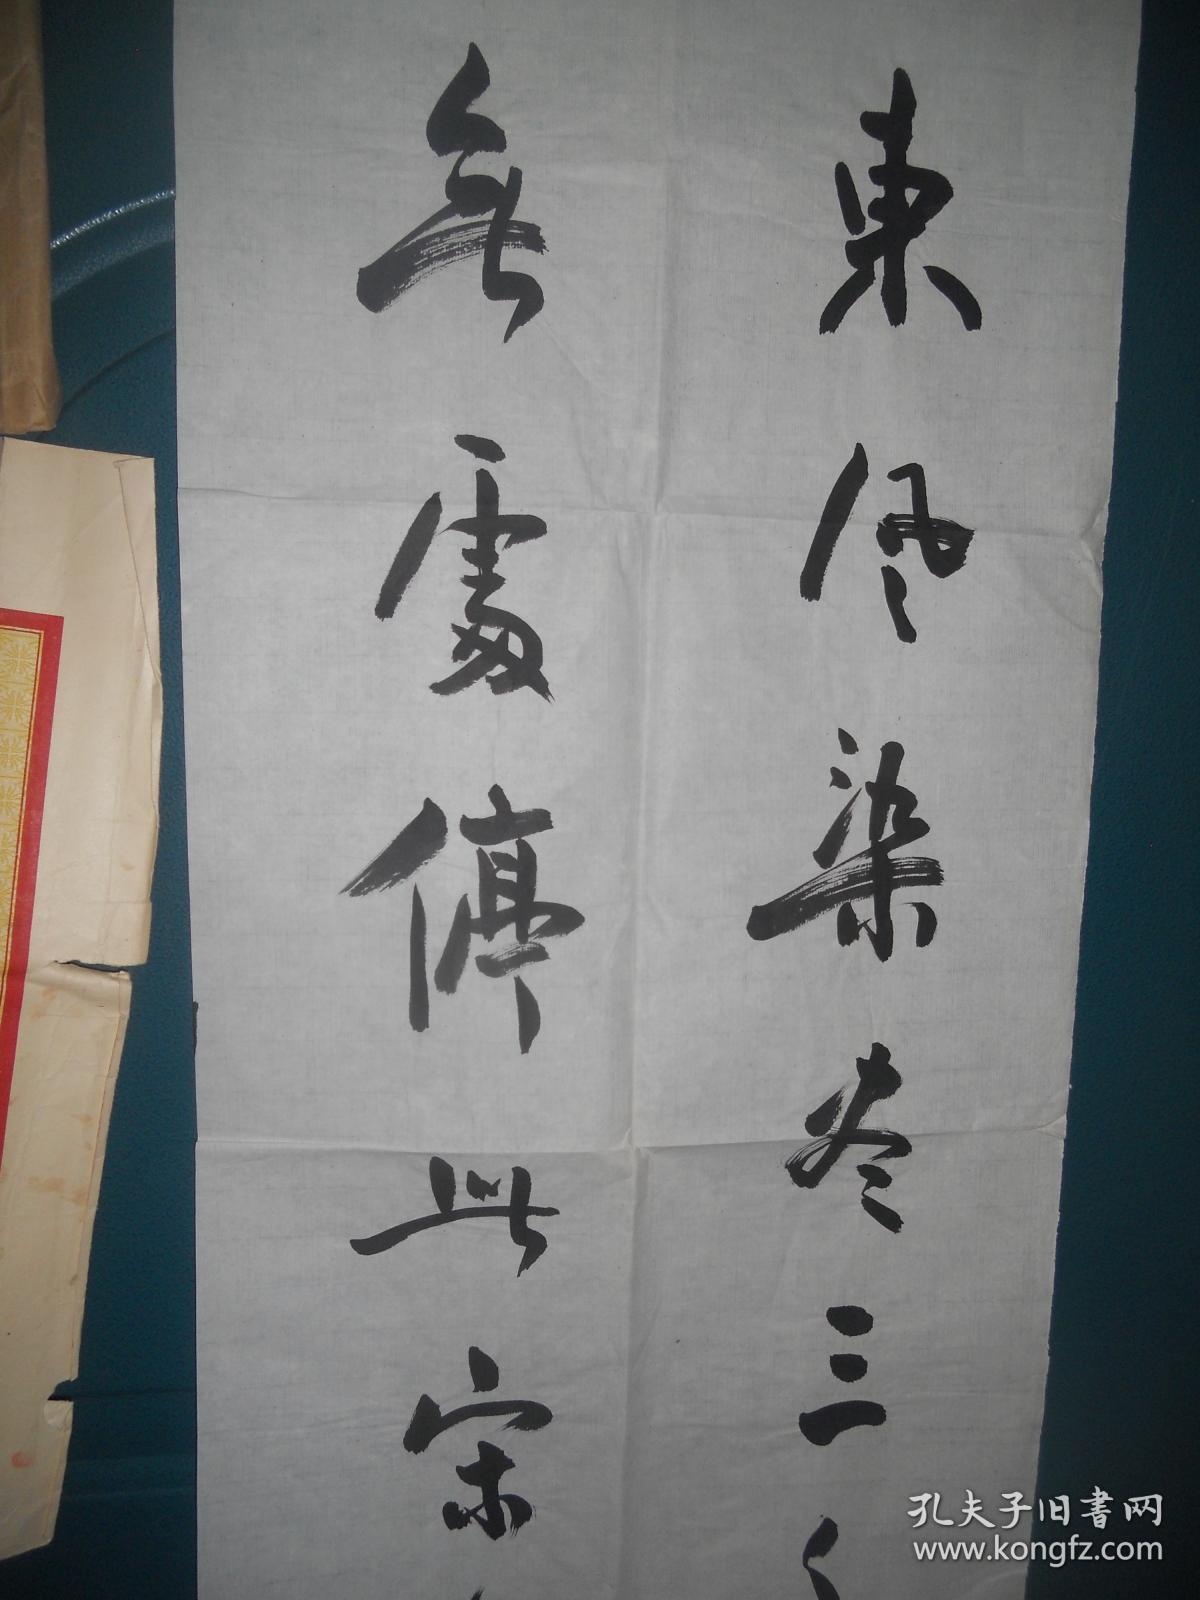 東風染尽三
無處停此宋
孔夫子旧書网
www.kongfz.com